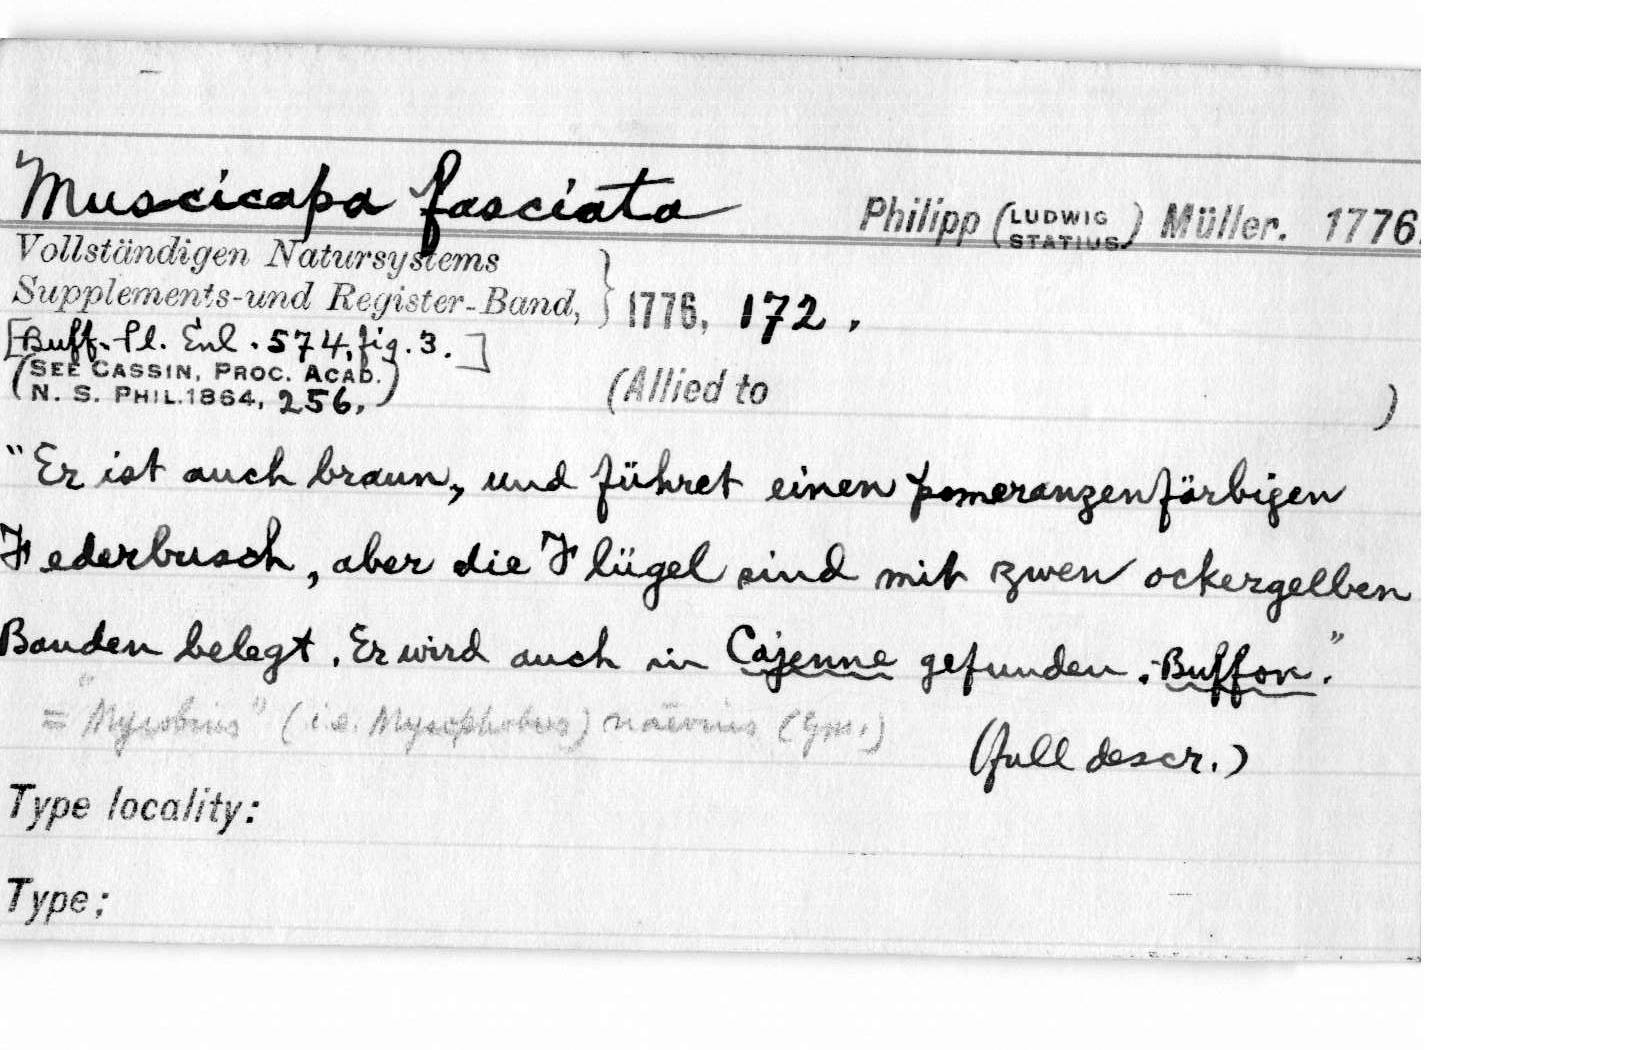 Muscicapa fasciata Philipp (LUDWIG STATIUS) Müller. 1776.
Vollständigen Natursystems
Supplements-und Register-Band, } 1776, 172.
[Buff. Pl. Enl. 574, fig. 3.]
(SEE CASSIN, PROC. ACAD.
N. S. PHIL. 1864, 256,) (Allied to )
"Er ist auch braun, und führet einen pomeranzenfärbigen
Federbusch, aber die Flügel sind mit zwen ockergelben
Banden belegt. Er wird auch in Cajenne gefunden. Buffon."
= "Myiobius" (i.e. Myiophobus) naevius (Gm.)
(full descr.)
Type locality:
Type;